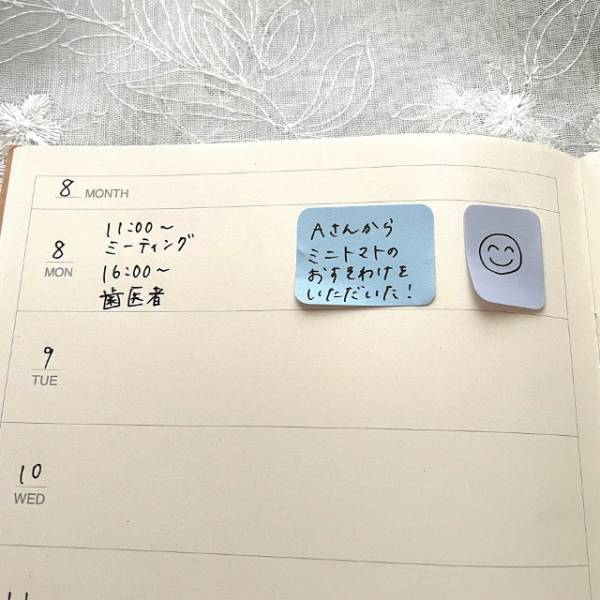 8 MONTH
8
MON
11:00～
ミーティング
16:00～
歯医者
Aさんから
ミニトマトの
おすそわけを
いただいた!
9
TUE
10
WED